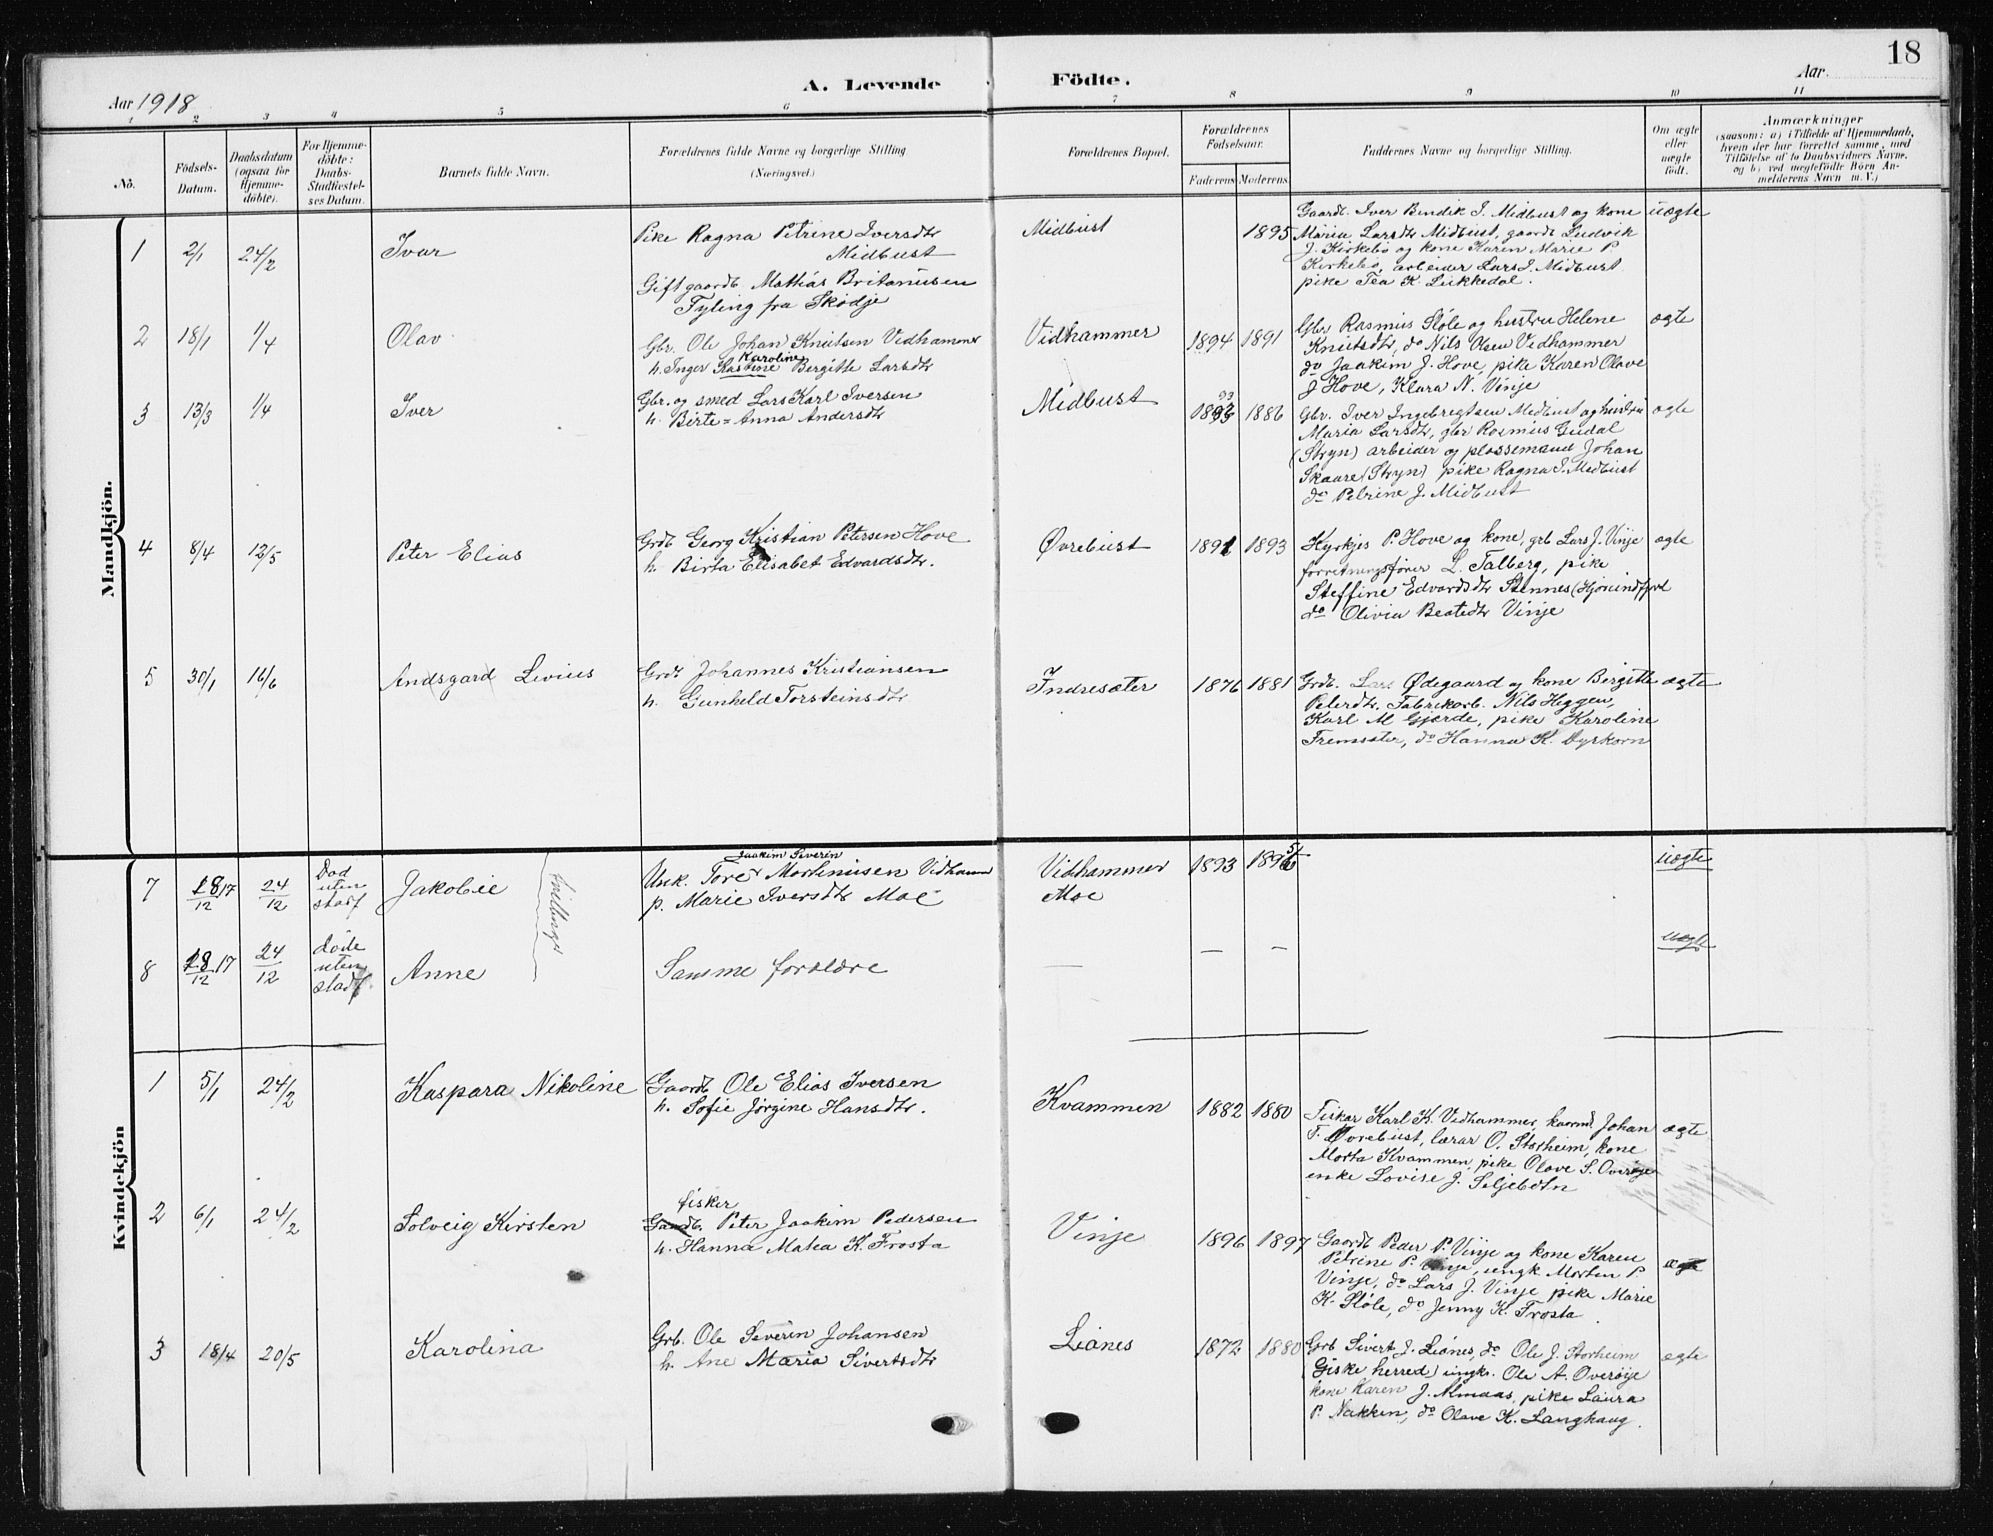 18
A. Levende Födte.
Aar 1918
Aar
1 2 3 4 5 6 7 8 9 10 11
No.
Födsels-Datum.
Daabsdatum (ogsaa for Hjemme-döbte).
For Hjemme-döbte: Daabs-Stadfæstel-ses Datum.
Barnets fulde Navn.
Forældrenes fulde Navne og borgerlige Stilling (Næringsvei.)
Forældrenes Bopæl.
Forældrenes Födselsaar.
Faderens Moderens
Faddernes Navne og borgerlige Stilling.
Om ægte eller uægte födt.
Anmærkninger
(saasom: a) i Tilfælde af Hjemmedaab, hvem der har forrettet samme, med Tilföielse af to Daabsvidners Navne, og b) ved uægtefödte Börn Anmelderens Navn m. V.)
Mandkjön.
1 2/1 24/2 Ivar
Pike Ragna Petrine Iversdtr
Midbust
Gift gaardb. Mathias Britanusen
Tyling fra Skodje
Midbust 1895
Gaardb. Iver Bendik I. Midbust og kone
Maria Larsdtr Midbust, gaardb Ludvik
J. Kirkebø og kone Karen Marie P.
Kirkebø, arbeider Lars I. Midbust
pike Tea K. Liikkedal.
uægte
2 18/1 1/4 Olav
Gbr. Ole Johan Knutsen Vidhammer
Karoline
h. Inger Kastine Bergitte Larsdtr
Vidhammer 1894 1891
Gbr Rasmus Støle og hustru Helene
Knutsdtr, do Nils Olsen Vidhammer
do Jaakim J. Hove, pike Karen Olave
J Hove, Klara N. Vinje
ægte
3 13/3 1/4 Iver
Gbr. og smed Lars Karl Iversen
h. Birte = Anna Andersdtr
Midbust 1893 1886
Gbr. Iver Ingebregtsen Midbust og hustru
Maria Larsdtr, gbr Rasmus Gudal
(Stryn) arbeider og plassemand Johan
Skaare (Stryn) pike Ragna I. Midbust
do Petrine J. Midbust
ægte
4 8/4 12/5 Peter Elias
Grdb Georg Kristian Petersen Hove
h. Birta Elisabet Edvardsdtr.
Øvrebust 1891 1893
Kyrkjes P. Hove og kone, grb Lars J. Vinje
forretningsfører L. Talberg, pike
Steffine Edvardsdtr Stennes (Hjørundfjord
do Olivia Beatedtr Vinje
ægte
5 30/1 16/6 Andsgard Livius
Grdb Johannes Kristiansen
h. Gunheld Torsteinsdtr
Indresæter 1876 1881
Grdb. Lars Ødegaard og kone Birgitte
Petersdtr, Fabrikarb. Nils Heggen,
Karl M Gjærde, pike Karoline
Fremsæter, do Hanna K. Dyrkorn
ægte
Kvindekjön
7 18/12 17 24/12 Død uten stadf Jakobie
tvillinger
Jaakim Severin
Unk. Tore Martinusen Vidhamm
p. Marie Iversdtr Moe
Vidhammer
Moe
1893 1896
uægte
8 18/12 17 24/12 Døde uten stadf. Anne
Samme forældre
— — —
uægte
1 5/1 24/2 Kaspara Nikoline
Gaardb Ole Elias Iversen
h. Sofie Jørgine Hansdtr.
Kvammen 1882 1880
Fisker Karl K. Vidhammer, kaarmd. Johan
T. Øvrebust, lærar O. Storheim, kone
Marta Kvammen, pike Olave S. Overøye
enke Lovise J. Seljebotn
ægte
2 6/1 24/2 Solveig Kirsten
fisker
Gaardb. Peter Jaakim Pedersen
h. Hanna Matea K. Frosta
Vinje 1896 1897
Gaardb Peder P. Vinje og kone Karen
Petrine P. Vinje, ungk. Morten P.
Vinje, do Lars J. Vinje pike Marie
K. Støle, do Jenny K. Frosta.
ægte
3 18/4 20/5 Karolina
Grb. Ole Severin Johansen
h. Ane Maria Sivertsdtr
Lianes 1872 1880
Grb Sivert J. Lianes, do Ole J. Storheim
(Giske herred) ungkr. Ole A. Overøye
kone Karen J. Almaas, pike Laura
P. Nakken, do Olave K. Langhaug.
ægte